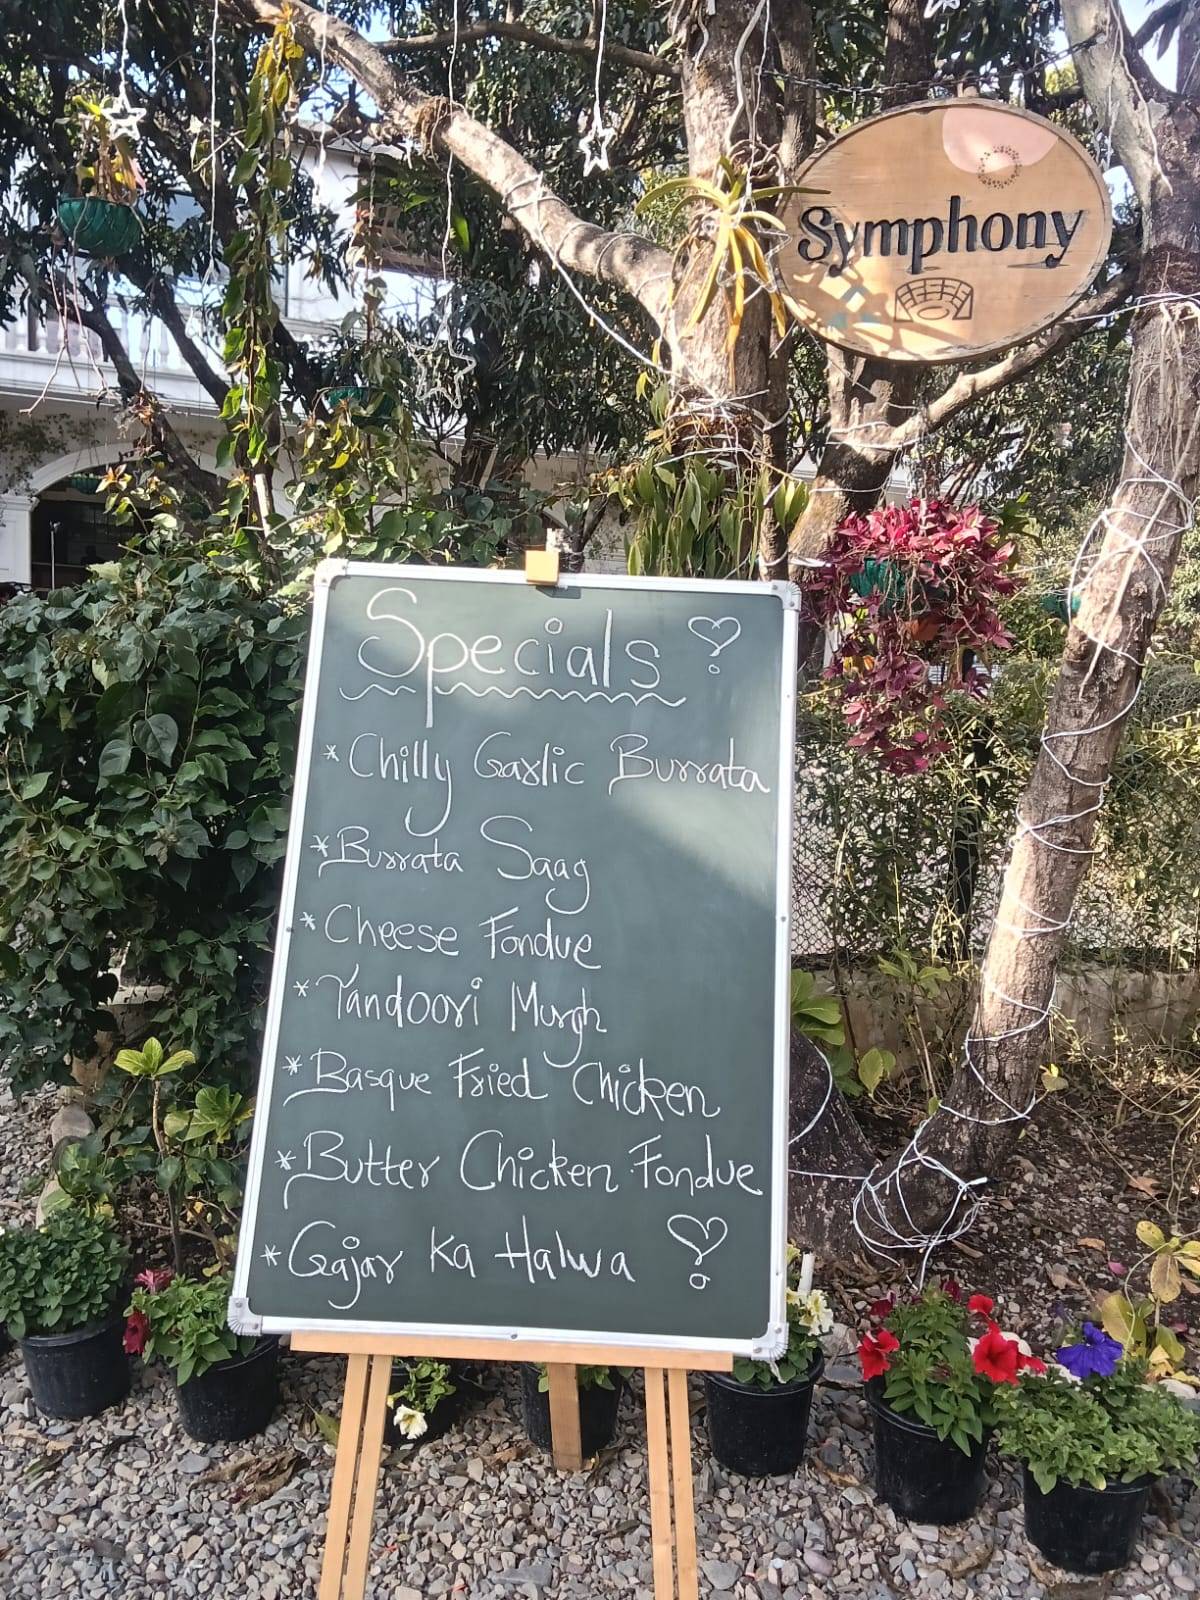 Symphony
Specials
* Chilly Garlic Burrata
* Burrata Saag
* Cheese Fondue
* Tandoori Murgh
* Basque Fried Chicken
* Butter Chicken Fondue
* Gajar Ka Halwa